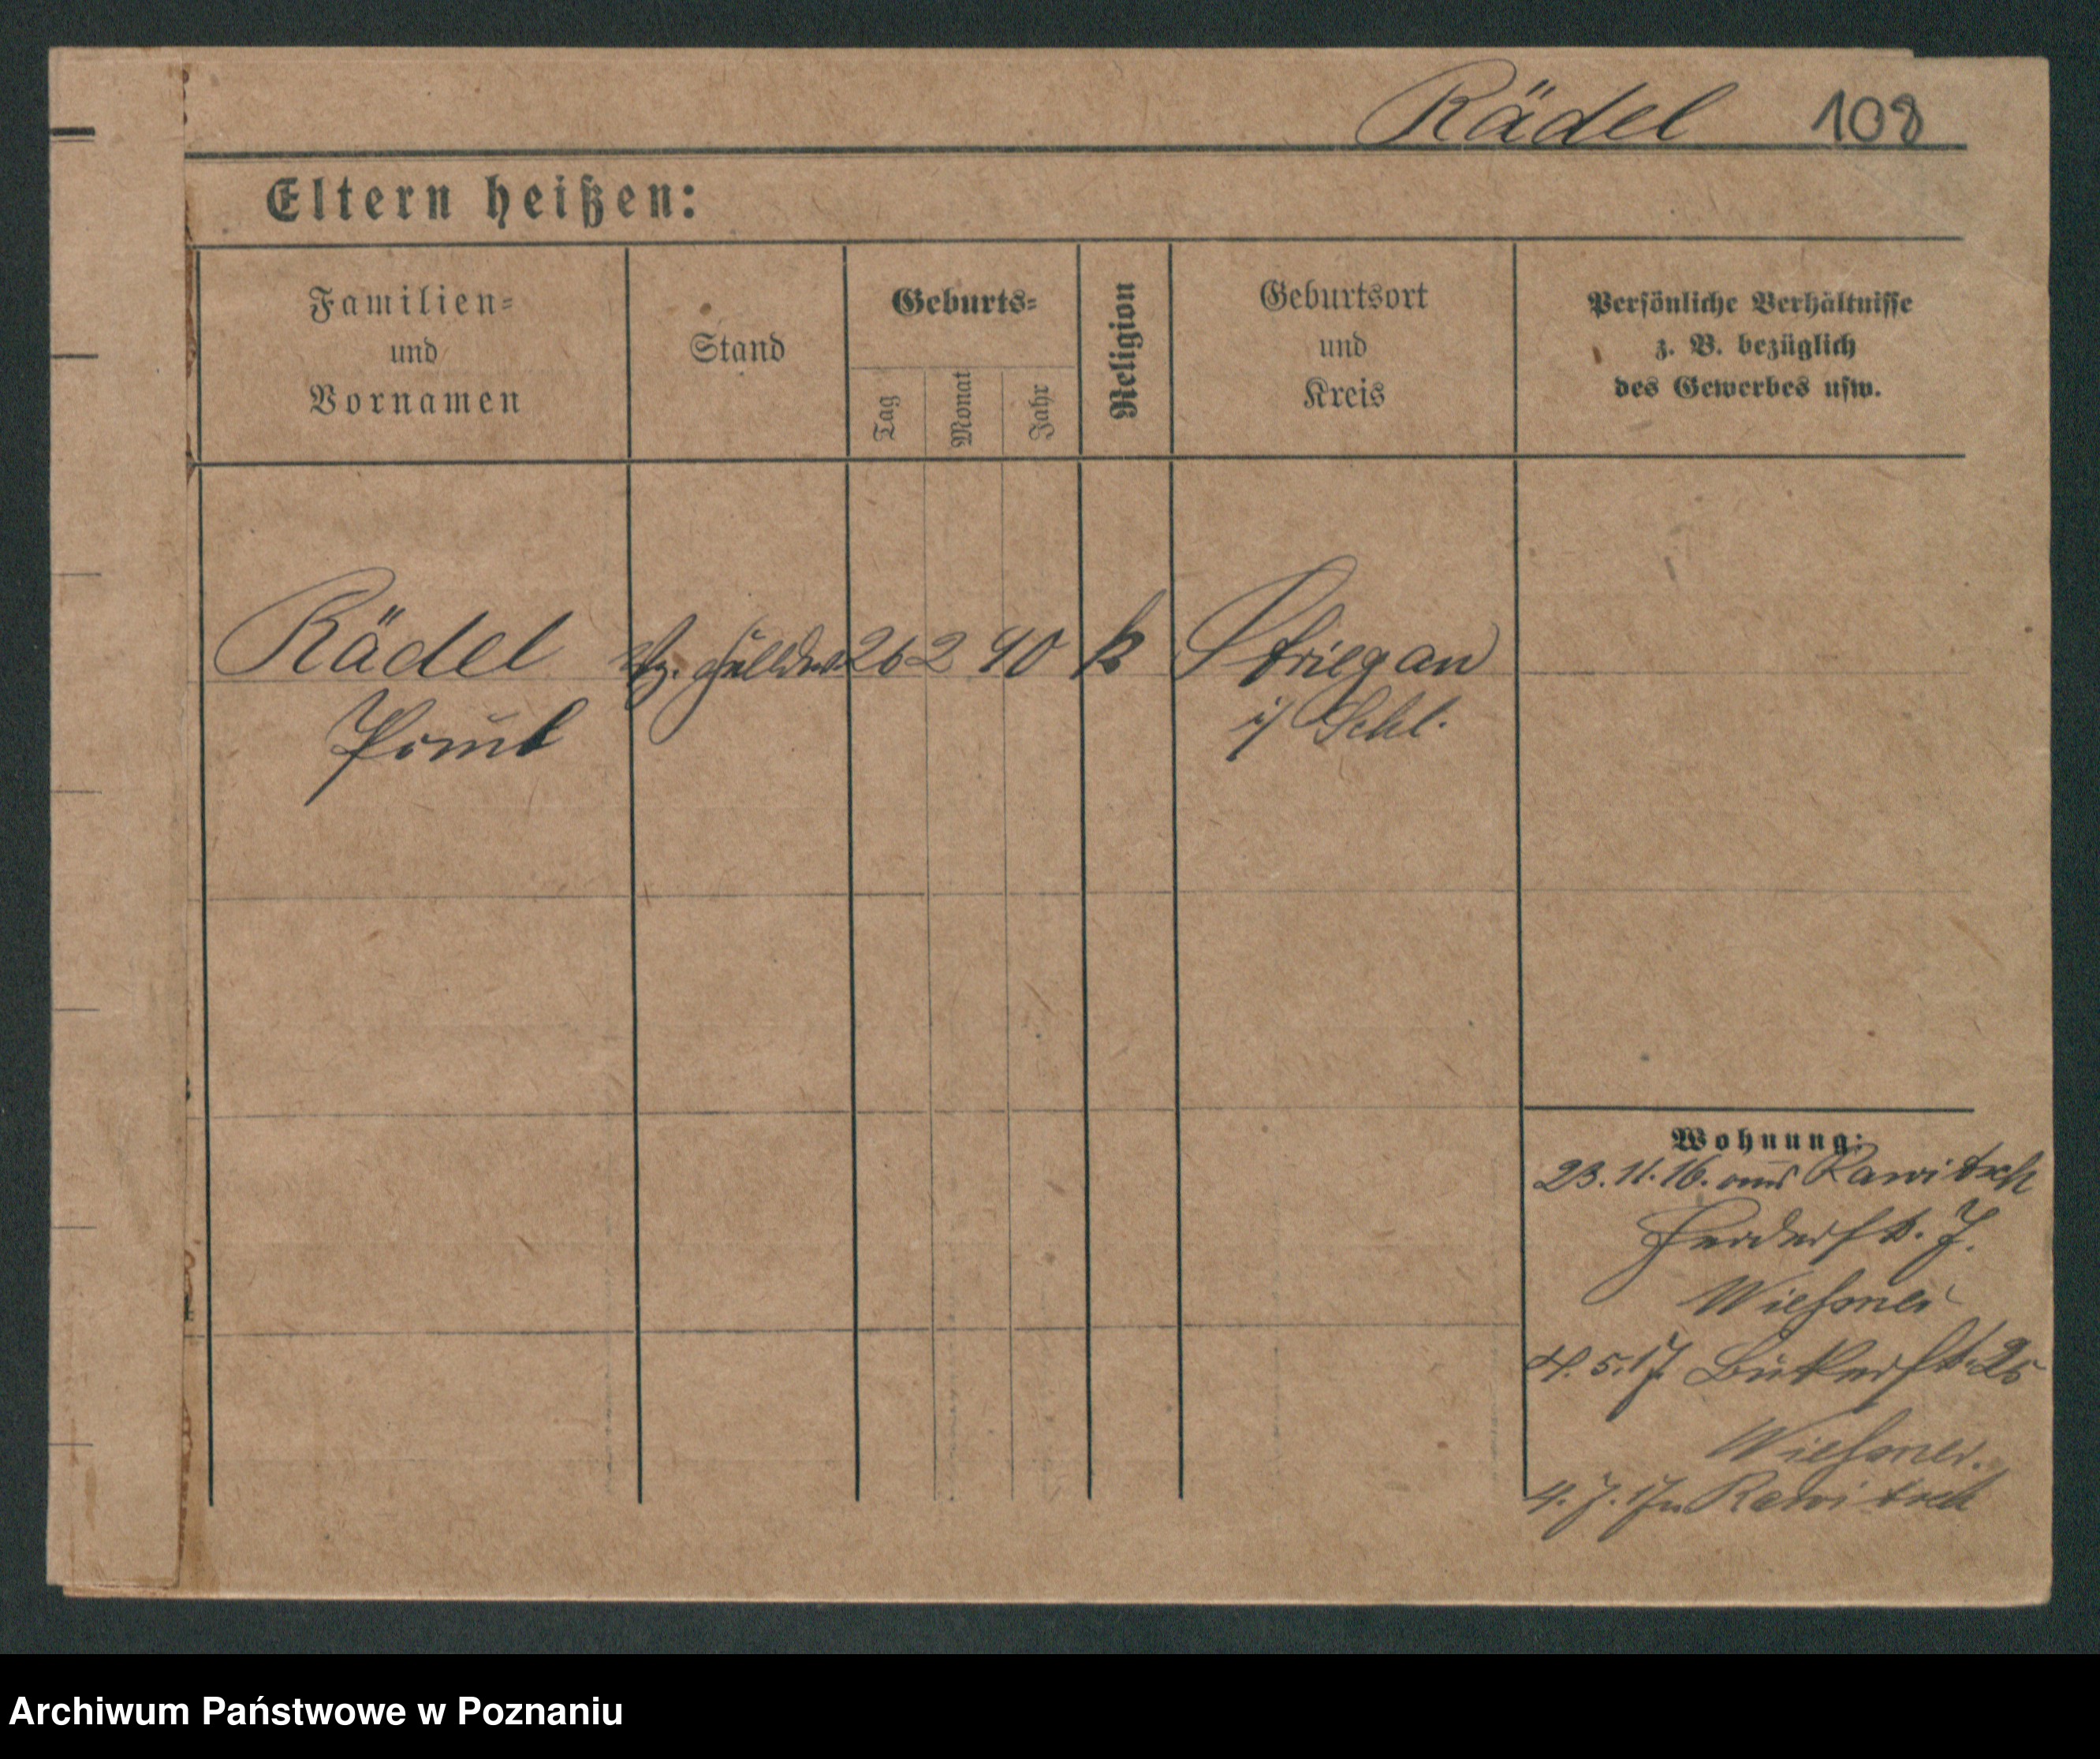 Rädel 108
Eltern heißen:
Familien-
und
Vornamen
Stand
Geburts-
Tag
Monat
Jahr
Religion
Geburtsort
und
Kreis
Persönliche Verhältnisse
z. B. bezüglich
des Gewerbes usw.
Rädel 26 2 90 k Striegau
Paul i/Schl.
Wohnung:
23.11.16. aus Rawitsch
Herderstr. 7.
Wiesner
4.5.17. Bäckerstr. 25
Wiesner.
4.7.17 n Rawitsch
Archiwum Państwowe w Poznaniu